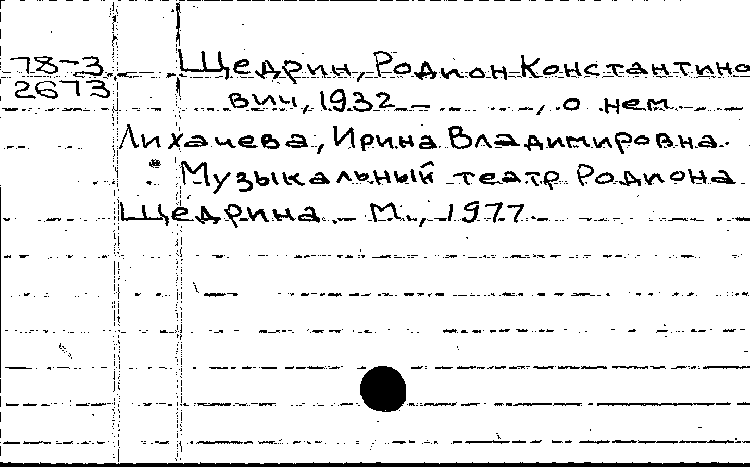 78-3 Щедрин, Родион Константино
2673 вич, 1932 - , о нем
Лихачева, Ирина Владимировна.
Музыкальный театр Родиона
Щедрина. - М., 1977.